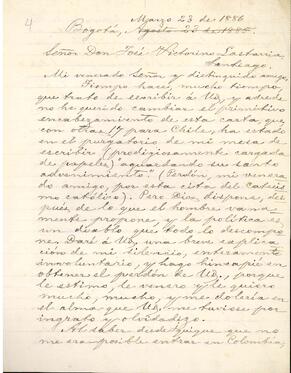 4
Marzo 23 de 1886
Bogotá, Agosto 23 de 1885.
Señor Don José Victorino Lastarria,
Santiago.
Mi venerado Señor y distinguido amigo,
Tiempo hace, mucho tiempo,
que trato de escribir á Ud, y adrede
no he querido cambiar el primitivo
encabezamiento de esta carta, que
con otras 17 para Chile, ha estado
en el purgatorio de mi mesa de
escribir (prodigiosamente cargada
de papeles) aguardando "su santo
advenimiento" (Perdón, mi venera-
do amigo, por esta cita del Catecis-
mo católico). Pero Dios dispone, des-
pués de lo que el hombre vana-
mente propone, y la política es
un diablo que todo lo descompo-
ne. Daré á Ud, una explica-
ción de mi silencio, enteramente
involuntario, y hago hincapié en
obtener el perdón de Ud., porque
le estimo, le venero y le quiero
mucho, mucho, y me dolería en
el alma que Ud, me tuviese por
ingrato y olvidadizo.
Al saber desde Iquique que no
me era posible entrar en Colombia,